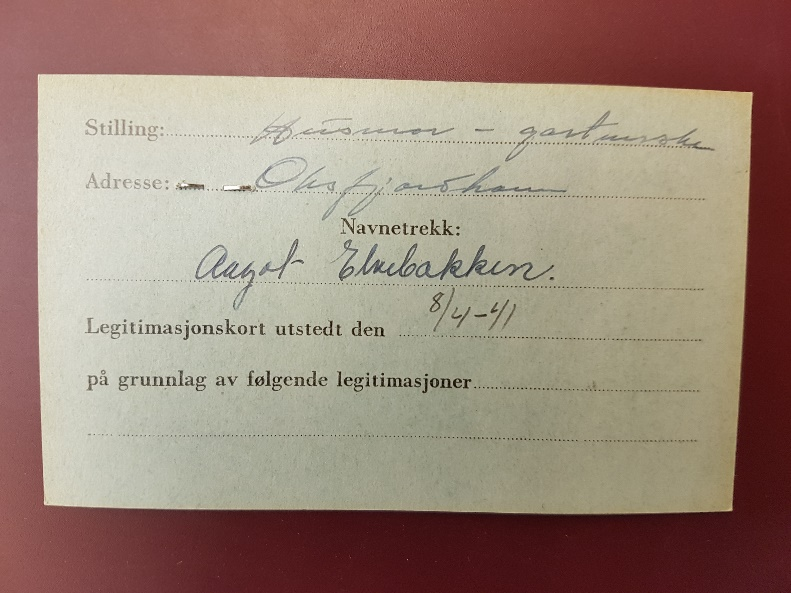 Stilling: Husmor - gartnerske
Adresse: Oksfjordhamn
Navnetrekk:
Aagot Elvebakken.
Legitimasjonskort utstedt den 8/4-41
på grunnlag av følgende legitimasjoner